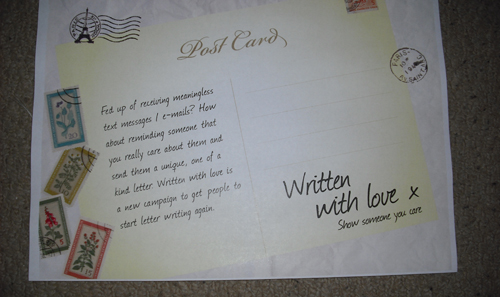 Post Card
PARIS
Fed up of receiving meaningless
text messages / e-mails? How
about reminding someone that
you really care about them and
send them a unique, one of a
kind letter. Written with love is
a new campaign to get people to
start letter writing again.
Written
with love x
Show someone you care